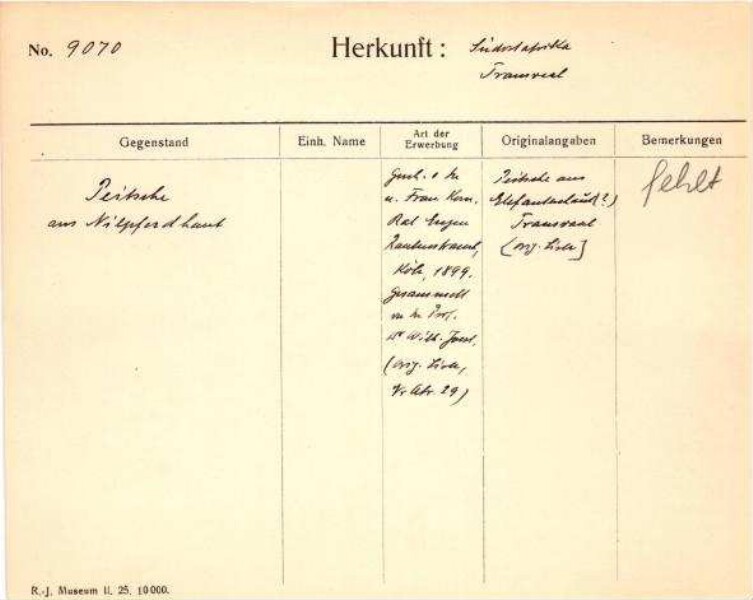 No. 9070
Herkunft: Südostafrika
Transvaal
Gegenstand
Einh. Name
Art der Erwerbung
Originalangaben
Bemerkungen
Peitsche
aus Nilpferdhaut
Gesch. v. Hr.
u. Frau Kom.
Rat Eugen
Rautenstrauch,
Köln, 1899.
Gesammelt
v. Hr. Prof.
Dr Wilh. Joest.
(orig. Liste,
Peitsche aus
Elefantenhaut(?)
Transvaal
[orig. Liste]
fehlt
R.-J. Museum II. 25. 10000.